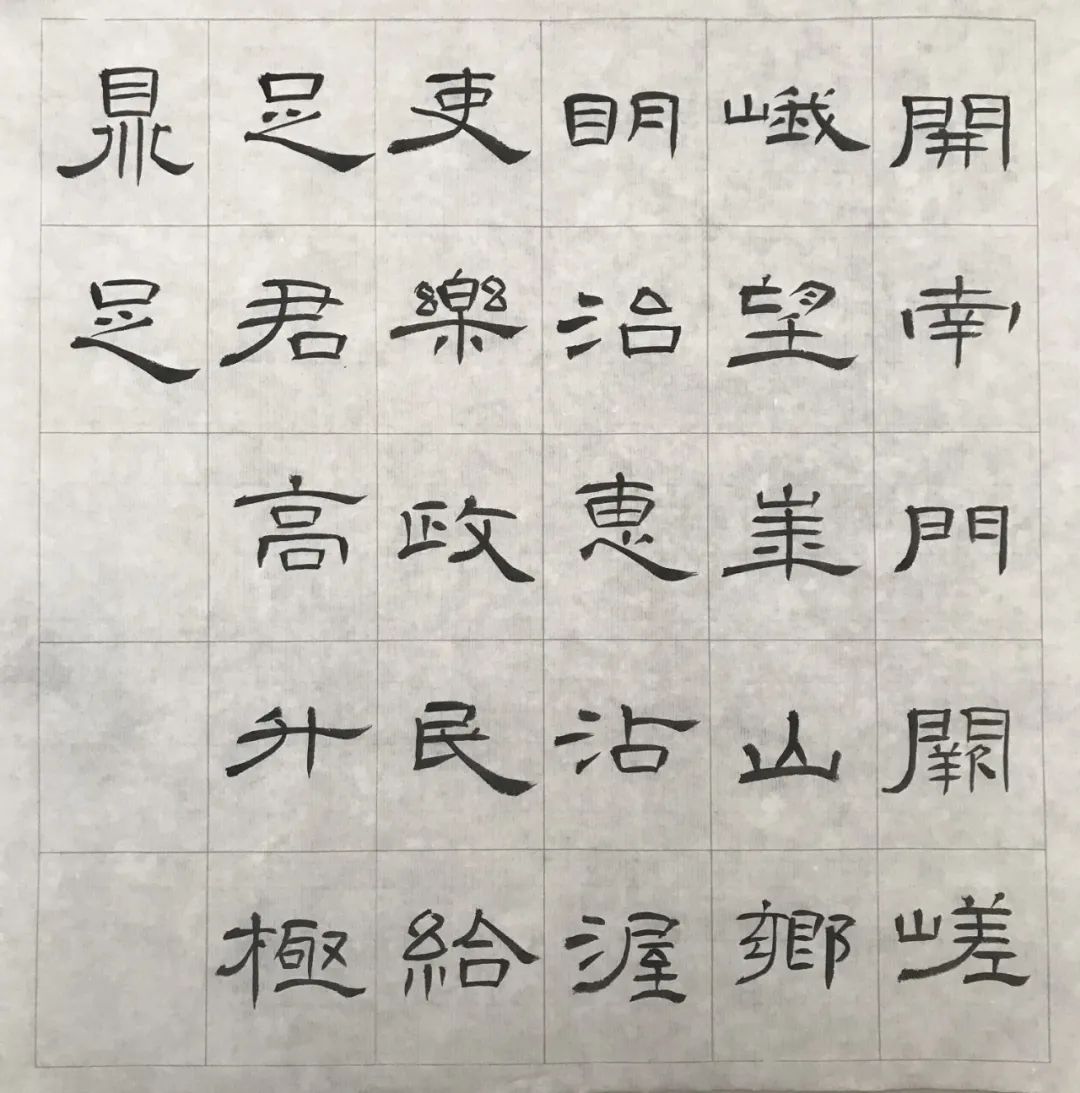 開南門闕嵯
峨望華山鄉
明治惠沾渥
吏樂政民給
足君高升極
鼎足